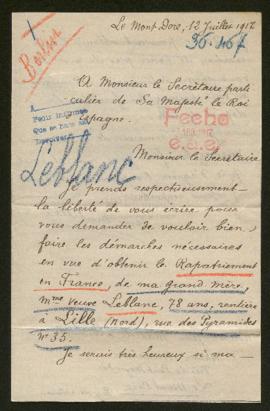 Le Mont-Dore, 12 Juillet 1917
36.467
A Monsieur le Secrétaire parti
culier de Sa Majesté le Roi
Espagne.
Fecha
1917
Monsieur le Secrétaire
Leblanc
prends respectueusement
la liberté de vous écrire pour
vous demander de vouloir bien
faire les démarches nécessaires
en vue d'obtenir le Rapatriement
en France, de ma grand'mère,
Mme Veuve Leblanc, 78 ans, rentière
à Lille (Nord), rue des Pyramides
N° 35.
Je serais très heureux si ma